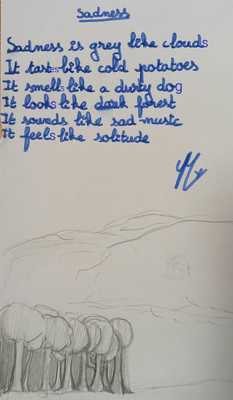 Sadness
Sadness is grey like clouds
It tastes like cold potatoes
It smells like a dusty dog
It looks like dark forest
It sounds like sad music
It feels like solitude